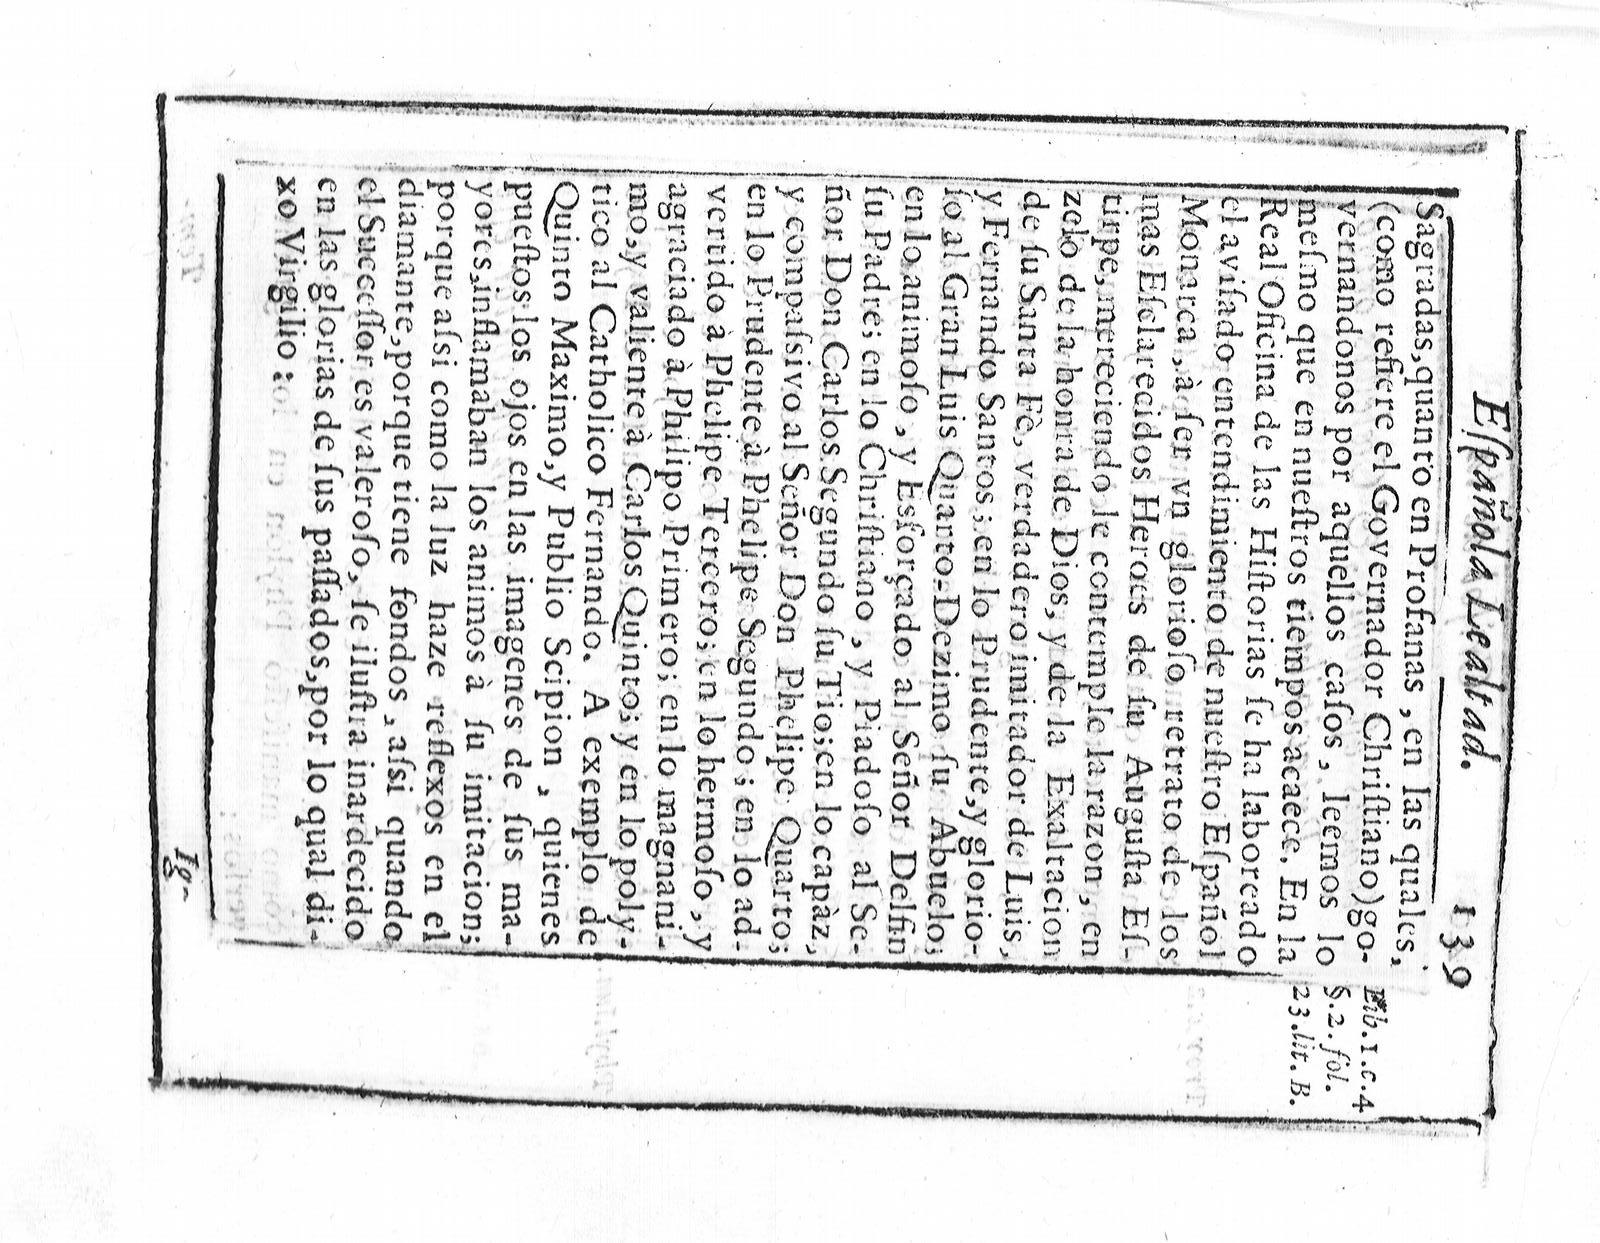 Eſpañola Lealtad. 139
Sagradas, quanto en Profanas, en las quales,
(como refiere el Governador Chriſtiano) go-
vernandonos por aquellos caſos, leemos lo
meſmo que en nueſtros tiempos acaece. En la
Real Oficina de las Hiſtorias ſe ha laboreado
el aviſado entendimiento de nueſtro Eſpañol
Monarca, à ſer vn glorioſo retrato de los
mas Eſclarecidos Heroes de ſu Auguſta Eſ-
tirpe, mereciendo le contemple la razon, en
zelo de la honra de Dios, y de la Exaltacion
de ſu Santa Fè, verdadero imitador de Luis,
y Fernando Santos; en lo Prudente, y glorio-
ſo al Gran Luis Quarto-Dezimo ſu Abuelo;
en lo animoſo, y Esforçado al Señor Delfin
ſu Padre; en lo Chriſtiano, y Piadoſo al Se-
ñor Don Carlos Segundo ſu Tio; en lo capàz,
y compaſsivo al Señor Don Phelipe Quarto;
en lo Prudente à Phelipe Segundo; en lo ad-
vertido à Phelipe Tercero; en lo hermoſo, y
agraciado à Philipo Primero; en lo magnani-
mo, y valiente à Carlos Quinto; y en lo poly-
tico al Catholico Fernando. A exemplo de
Quinto Maximo, y Publio Scipion, quienes
pueſtos los ojos en las imagenes de ſus ma-
yores, inflamaban los animos à ſu imitacion;
porque aſsi como la luz haze reflexos en el
diamante, porque tiene fondos, aſsi quando
el Suceſſor es valeroſo, ſe iluſtra inardecido
en las glorias de ſus paſſados, por lo qual di-
xo Virgilio:
Ig-
Lib.1.c.4
§.2. fol.
23.lit. B.